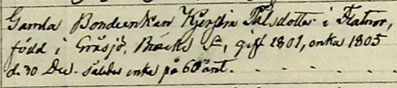 Gamla Bondeenkan Kjerstin Pålsdotter i Flatnor,
född i Gräsjö, Bräcke S., gift 1801, enka 1805
d. 30 Dec. Således enka på 60 året.